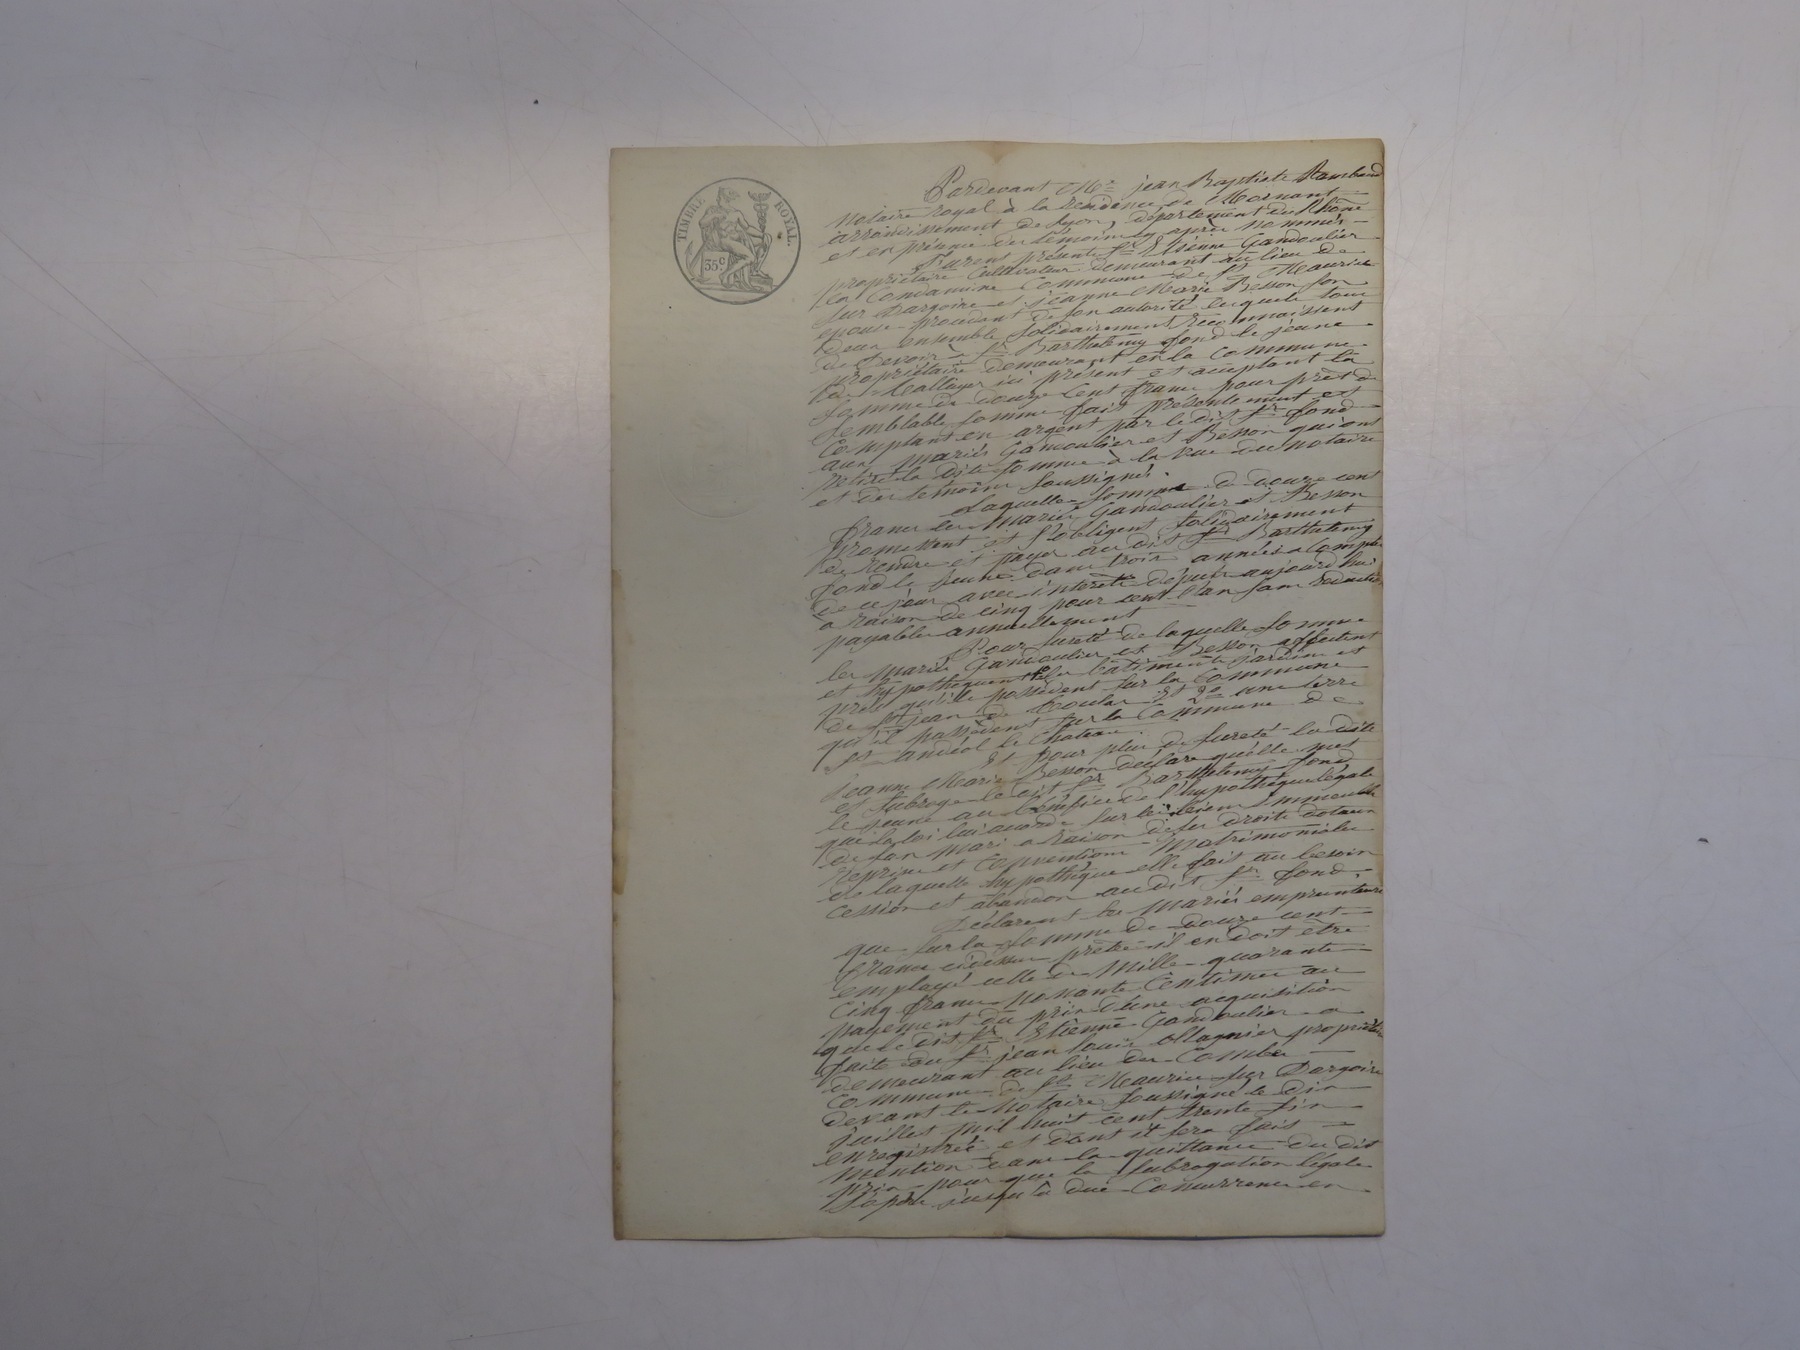 TIMBRE ROYAL.
35c
Pardevant Me jean Baptiste Rambaud
notaire royal à la residence de Mornant
arrondissement de Lyon, département du Rhône
et en présence des témoins cy après nommés
furent présents Sr Etienne Gandoulier
propriétaire Cultivateur demeurant au lieu de
la Condamine Commune de St Maurice
sur Dargoire et jeanne Marie Besson son
épouse procédant de son autorité lesquels tous
deux ensemble solidairement reconnaissent
de devoir à Sr Barthelemy fond le jeune
propriétaire demeurant en la commune
de ici présent et acceptant la
somme de douze cent francs pour prêt de
semblable somme fait présentement et
Comptant en argent par le dit Sr fond
aux mariés Gandoulier et Besson qui ont
retiré la dite somme à la vue du notaire
et des témoins soussignés.
Laquelle somme de douze cent
francs les mariés Gandoulier et Besson
promettent et s'obligent solidairement
de rendre et payer au dit Sr Barthelemy
fond le jeune dans trois années a compter
de ce jour avec intérêts depuis aujourd'hui
a raison de cinq pour cent l'an sans
payables annuellement
Pour sureté de laquelle somme
les mariés Gandoulier et Besson affectent
et hypothequent les batiments jardin et
prés qu'ils possèdent sur la Commune
de St jean de Toulas Et 2o une terre
qu'il possèdent sur la Commune de
St andéol le Chateau.
Et pour plus de sureté la dite
Jeanne Marie Besson declare qu'elle met
et subroge le dit Sr Barthelemy fond
le jeune au bénéfice de l'hypothèque légale
que la loi lui accorde sur les biens immeubles
de son mari a raison de ses droits dotaux
reprises et Conventions Matrimoniales
de laquelle hypothèque elle fait au besoin
cession et abandon au dit Sr fond.
Déclarent les mariés emprunteurs
que sur la somme de douze cent
francs cidessus prêtée il en doit être
employé celle de Mille quarante
cinq francs nonante Centimes au
payement du prix d'une acquisition
que le dit Sr Etienne Gandoulier a
faite du Sr jean louis ollagnier propriétaire
demeurant au lieu des Combes
commune de St Maurice sur Dargoire
devant le Notaire soussigné le dix
juillet mil huit cent trente six
enregistrée et dont il sera fait
mention dans la quittance du dit
prix pour que la subrogation légale
s'opère jusqu'à due Concurrence en